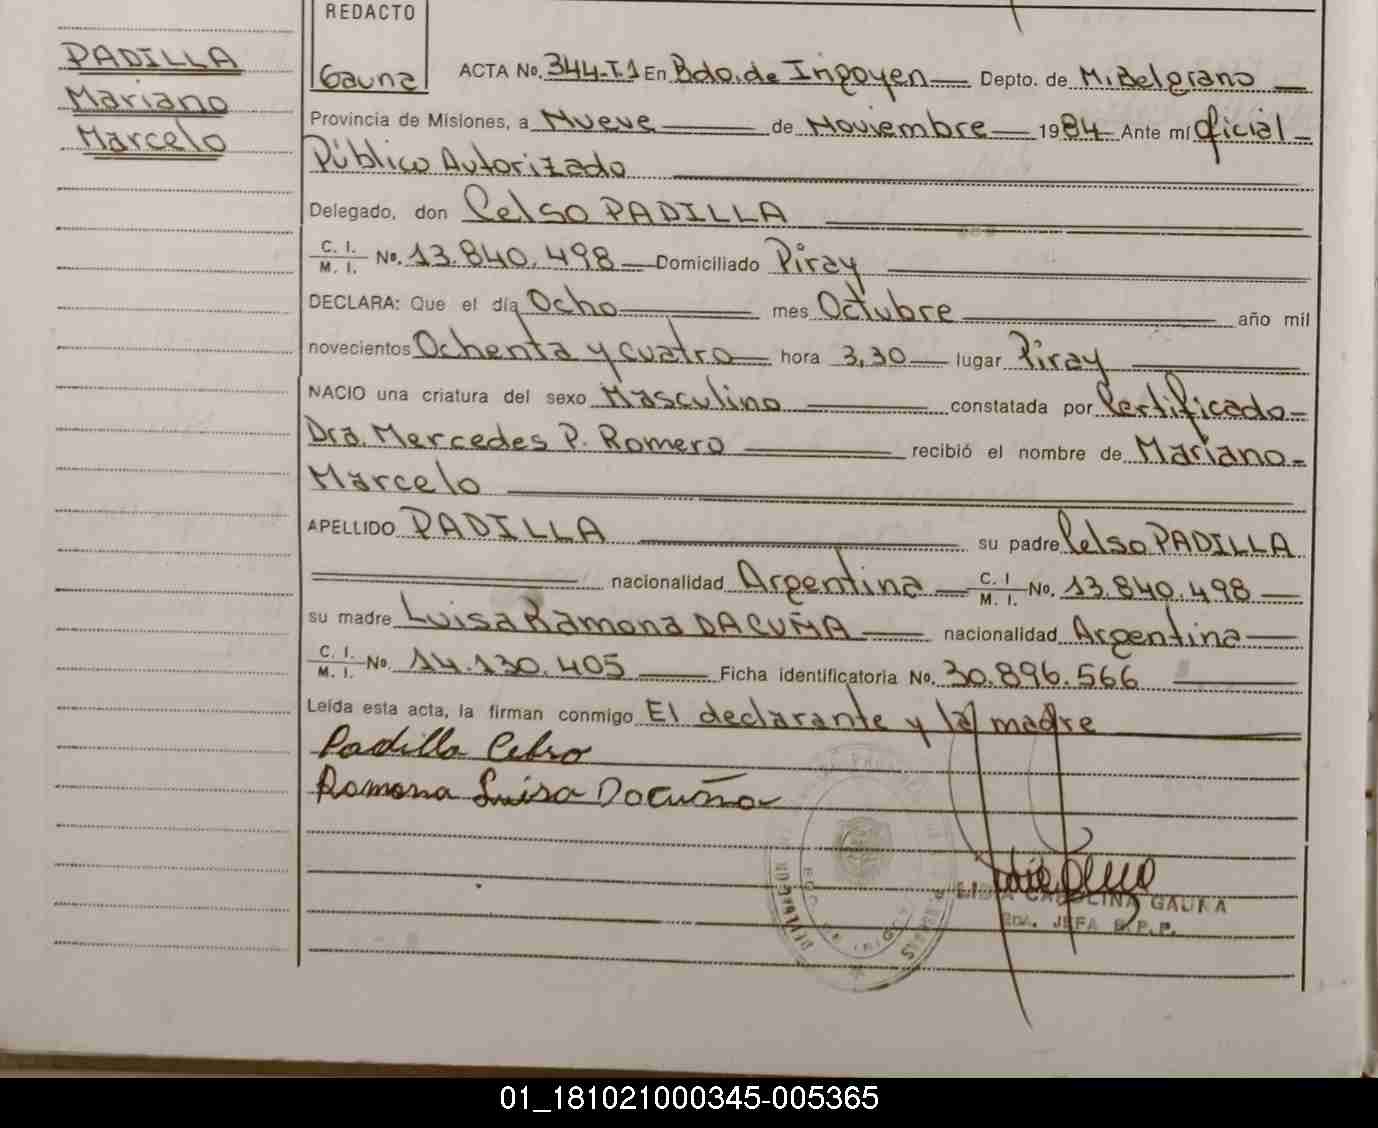 REDACTO
PADILLA
Mariano
Marcelo
Gauna
ACTA No. 344-T1 En Bdo. de Irigoyen Depto. de M. Belgrano
Provincia de Misiones, a Nueve de Noviembre 1984 Ante mí Oficial
Público Autorizado
Delegado, don Celso PADILLA
C. I. / M. I. No. 13.840.498 Domiciliado Piray
DECLARA: Que el día Ocho mes Octubre año mil
novecientos Ochenta y cuatro hora 3,30 lugar Piray
NACIO una criatura del sexo Masculino constatada por Certificado
Dra. Mercedes P. Romero recibió el nombre de Mariano
Marcelo
APELLIDO PADILLA su padre Celso PADILLA
nacionalidad Argentina C. I / M. I. No. 13.840.498
su madre Luisa Ramona DACUÑA nacionalidad Argentina
C. I. / M. I. No. 14.130.405 Ficha identificatoria No. 30.896.566
Leída esta acta, la firman conmigo El declarante y la madre
Padilla Celso
Ramona Luisa Dacuña
LIDIA CAROLINA GAUNA
JEFA
01_181021000345-005365